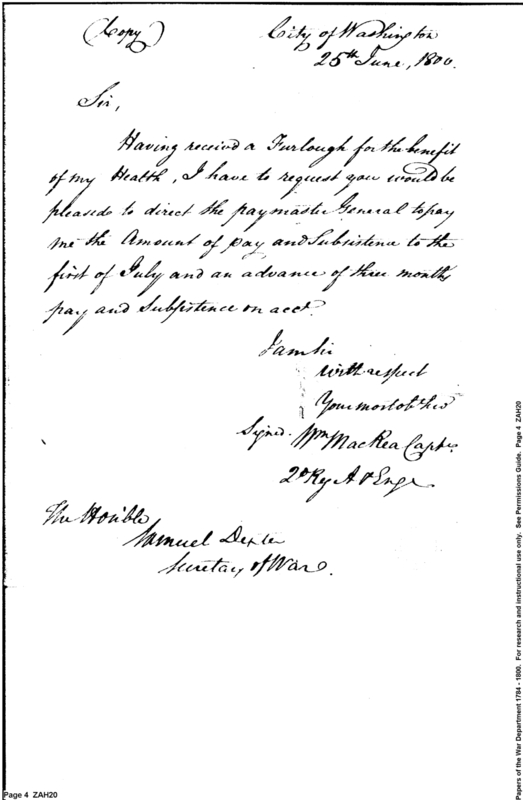 (Copy)
City of Washington
25th June, 1800.
Sir,
Having receivd a Furlough for the benefit
of my Health, I have to request you would be
pleased to direct the paymaster General to pay
me the Amount of pay and Subsistence to the
first of July and an advance of three months
pay and Subsistence on acct.
I am Sir
with respect
Your most obt
Signed. Wm MacRea Capt
2d Reg A & Eng
The Honble
Samuel Dexter
Secretary of War.
Page 4 ZAH20
Papers of the War Department 1784 - 1800. For research and instructional use only. See Permissions Guide. Page 4 ZAH20